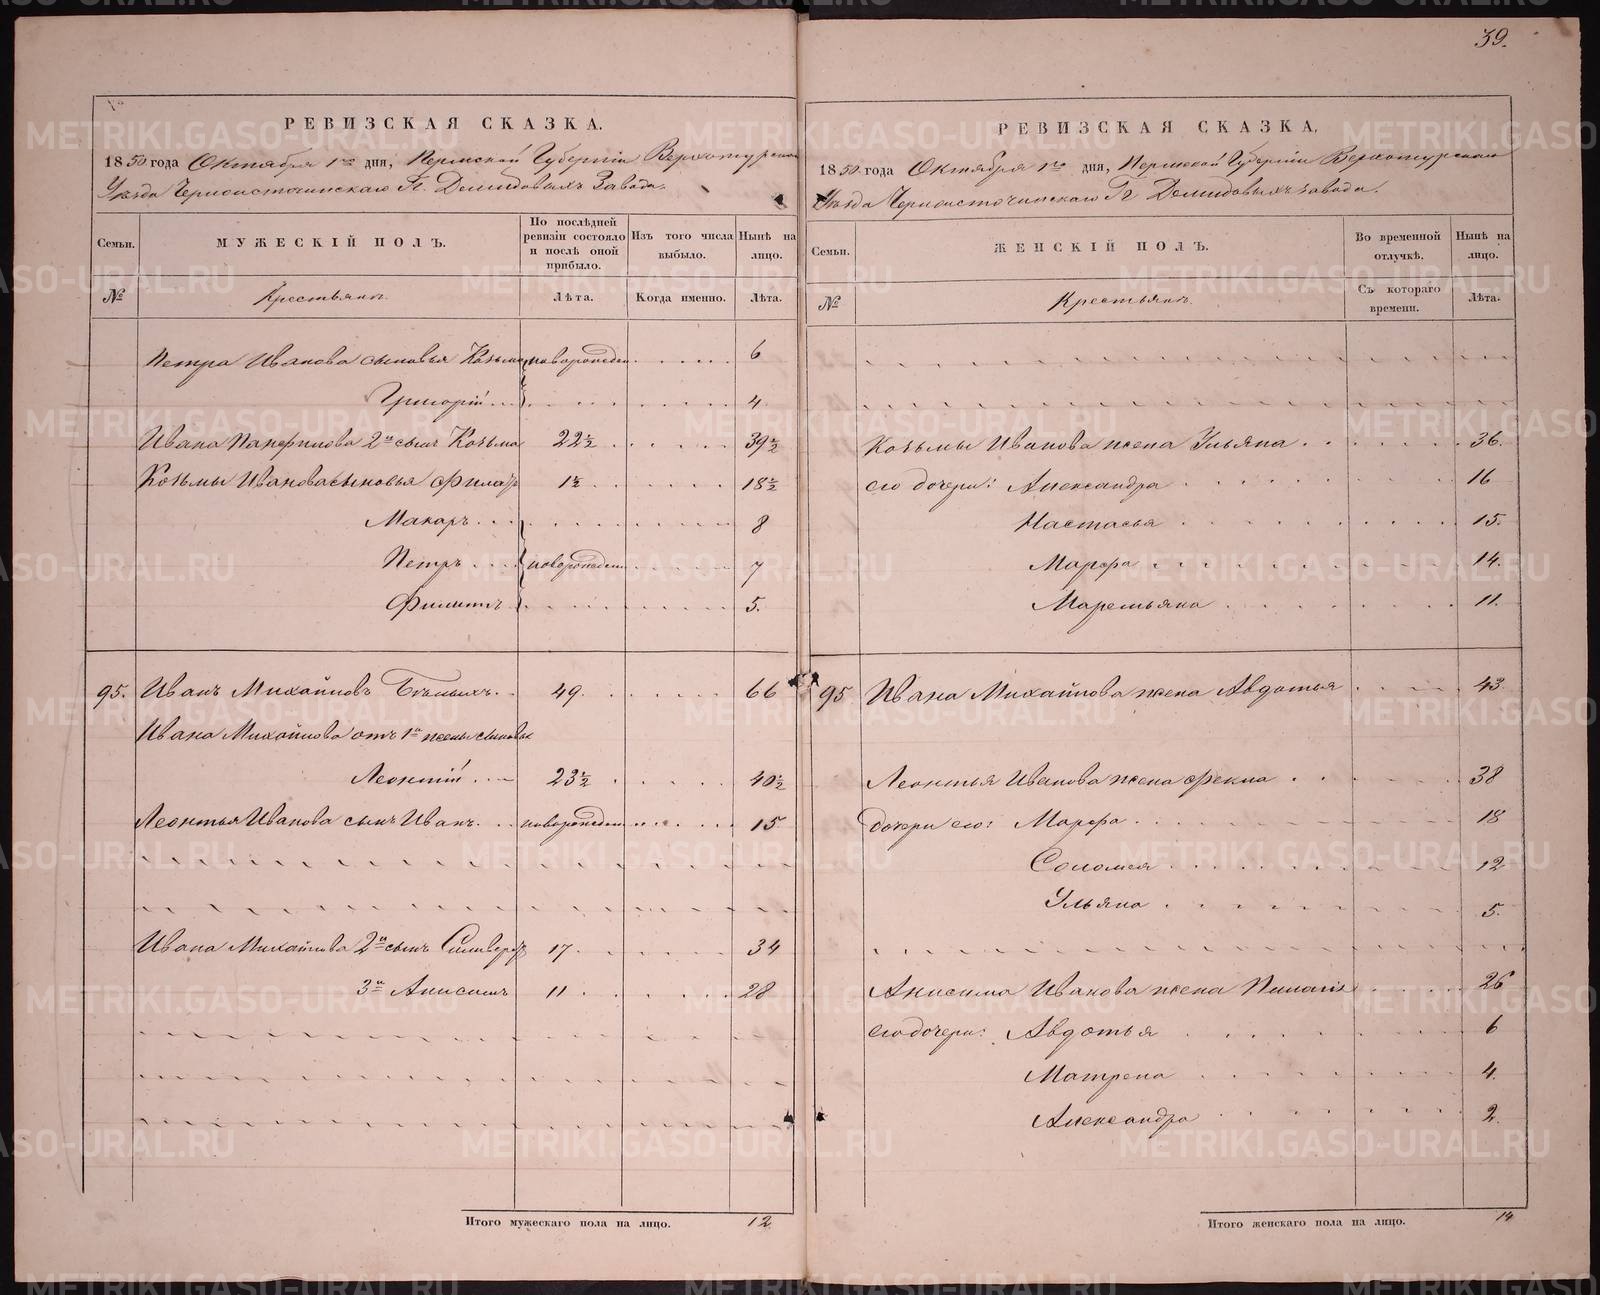 39.
РЕВИЗСКАЯ СКАЗКА.
1850 года Октября 1го дня, Пермской Губернiи Верхотурскаго
Уѣзда Черноисточинскаго Гг. Демидовыхъ Завода.
Семьи.
МУЖЕСКIЙ ПОЛЪ.
По послѣдней ревизiи состояло и послѣ оной прибыло.
Изъ того числа выбыло.
Нынѣ на лицо.
№
Крестьянъ.
Лѣта.
Когда именно.
Лѣта.
Петра Иванова сыновья Козьма новорожден 6
Григорiй 4
Ивана Панфилова 2й сынъ Козьма 22½ 39½
Козьмы Иванова сыновья Филатъ 1½ 18½
Макаръ 8
Петръ новорожден 7
Филиппъ 5.
95. Иванъ Михайловъ Бѣлыхъ 49. 66
Ивана Михайлова отъ 1й жены сыновья
Леонтiй 23½ 40½
Леонтья Иванова сынъ Иванъ новорожден 15
Ивана Михайлова 2й сынъ Сильверстъ 17 34
3й Анисимъ 11 28
Итого мужескаго пола на лицо. 12
РЕВИЗСКАЯ СКАЗКА.
1850 года Октября 1го дня, Пермской Губернiи Верхотурскаго
Уѣзда Черноисточинскаго Гг Демидовыхъ завода.
Семьи.
ЖЕНСКIЙ ПОЛЪ.
Во временной отлучкѣ.
Нынѣ на лицо.
№
Крестьянъ.
Съ котораго времени.
Лѣта.
Козьмы Иванова жена Ульяна 36.
его дочери: Александра 16
Настасья 15.
Марфа 14.
Маремьяна 11.
95 Ивана Михайлова жена Авдотья 43
Леонтья Иванова жена Фекла 38
дочери его: Марфа 18
Соломея 12
Ульяна 5.
Анисима Иванова жена Пелагея 26
его дочери: Авдотья 6
Матрена 4.
Александра 2.
Итого женскаго пола на лицо. 14
METRIKI.GASO-URAL.RU